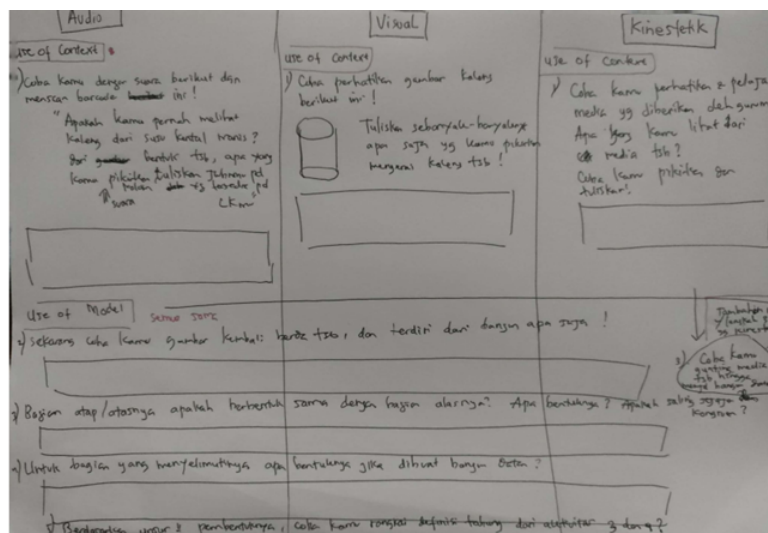 Audio
Use of Context
1) Coba kamu dengar suara berikut dan
menscan barcode ini!
"Apakah kamu pernah melihat
kaleng dari susu kental manis?
dari bentuk tsb, apa yang
kamu pikirkan, tuliskan jawaban pd
yg tersedia pd
suara
LKM"
Visual
Use of Context
1) Coba perhatikan gambar kaleng
berikut ini!
Tuliskan sebanyak-banyaknya
apa saja yg kamu pikirkan
mengenai kaleng tsb!
Kinestetik
Use of Context
1) Coba kamu perhatikan
media yg diberikan oleh gurumu
Apa yang kamu lihat dari
media tsb?
Coba kamu pikirkan dan
tuliskan!
Use of Model
semua sama
2) Sekarang coba kamu gambar kembali benda tsb, dan terdiri dari bangun apa saja!
3) Coba kamu
gunting media
tsb hingga
3) Bagian atap/atasnya apakah berbentuk sama dengan bagian alasnya? Apa bentuknya? Apakah saling sejajar dan
kongruen?
4) Untuk bagian yang menyelimutinya apa bentuknya jika dibuat bangun datar?
Berdasarkan unsur2 pembentuknya, coba kamu rangkai definisi tabung dari aktivitas 3 dan 4?